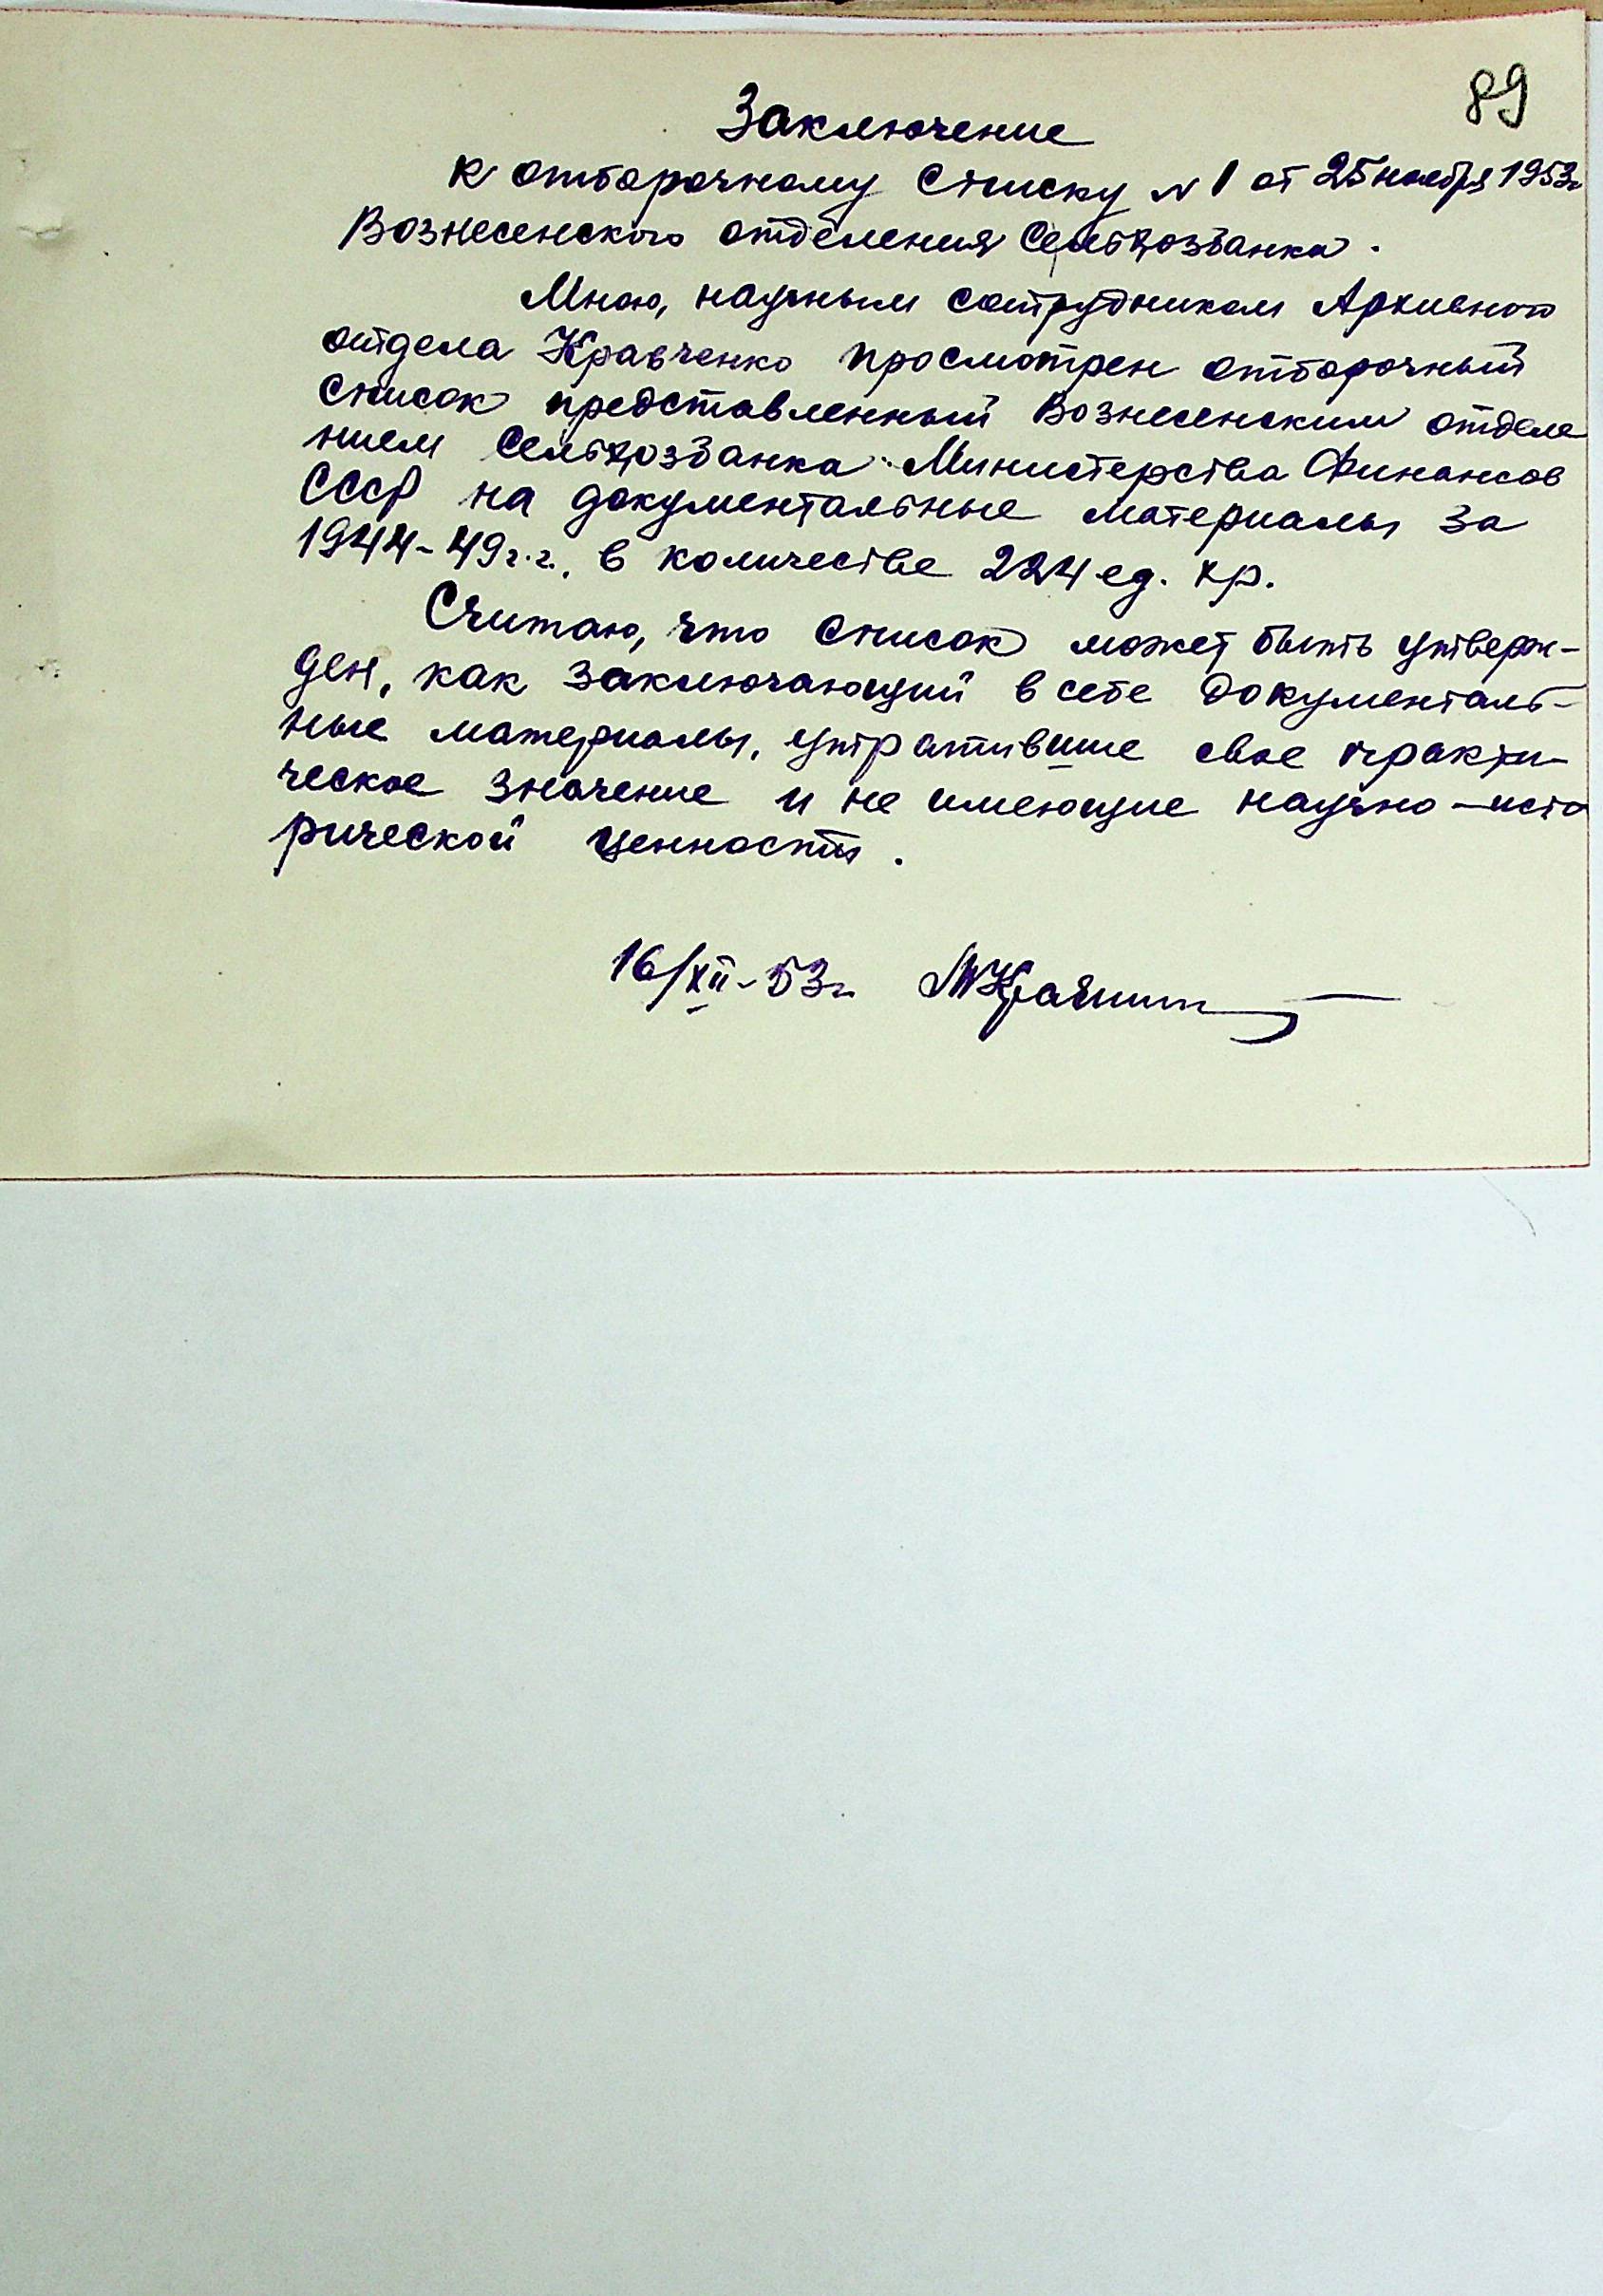 89
Заключение
к отборочному списку N 1 от 25 ноября 1953г
Вознесенского отделения Сельхозбанка.
Мною, научным сотрудником Архивного
отдела Кравченко просмотрен отборочный
список представленный Вознесенским отделе
нием Сельхозбанка Министерства Финансов
СССР на документальные материалы за
1944-49г.г., в количестве 224 ед. хр.
Считаю, что список может быть утверж-
ден, как заключающий в себе документаль-
ные материалы, утратившие свое практи-
ческое значение и не имеющие научно-исто
рической ценности.
16/XII-53г.